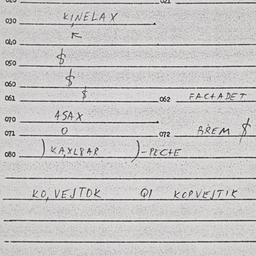 020 021
030 KINELAX
040
050 $
060 $
061 $ 062 FACTADET
070 ASAX
071 0 072 BŘEM $
080 ) KAXLBAR )-PECTE
KO, VEJTOK QI KOPVEJTIK